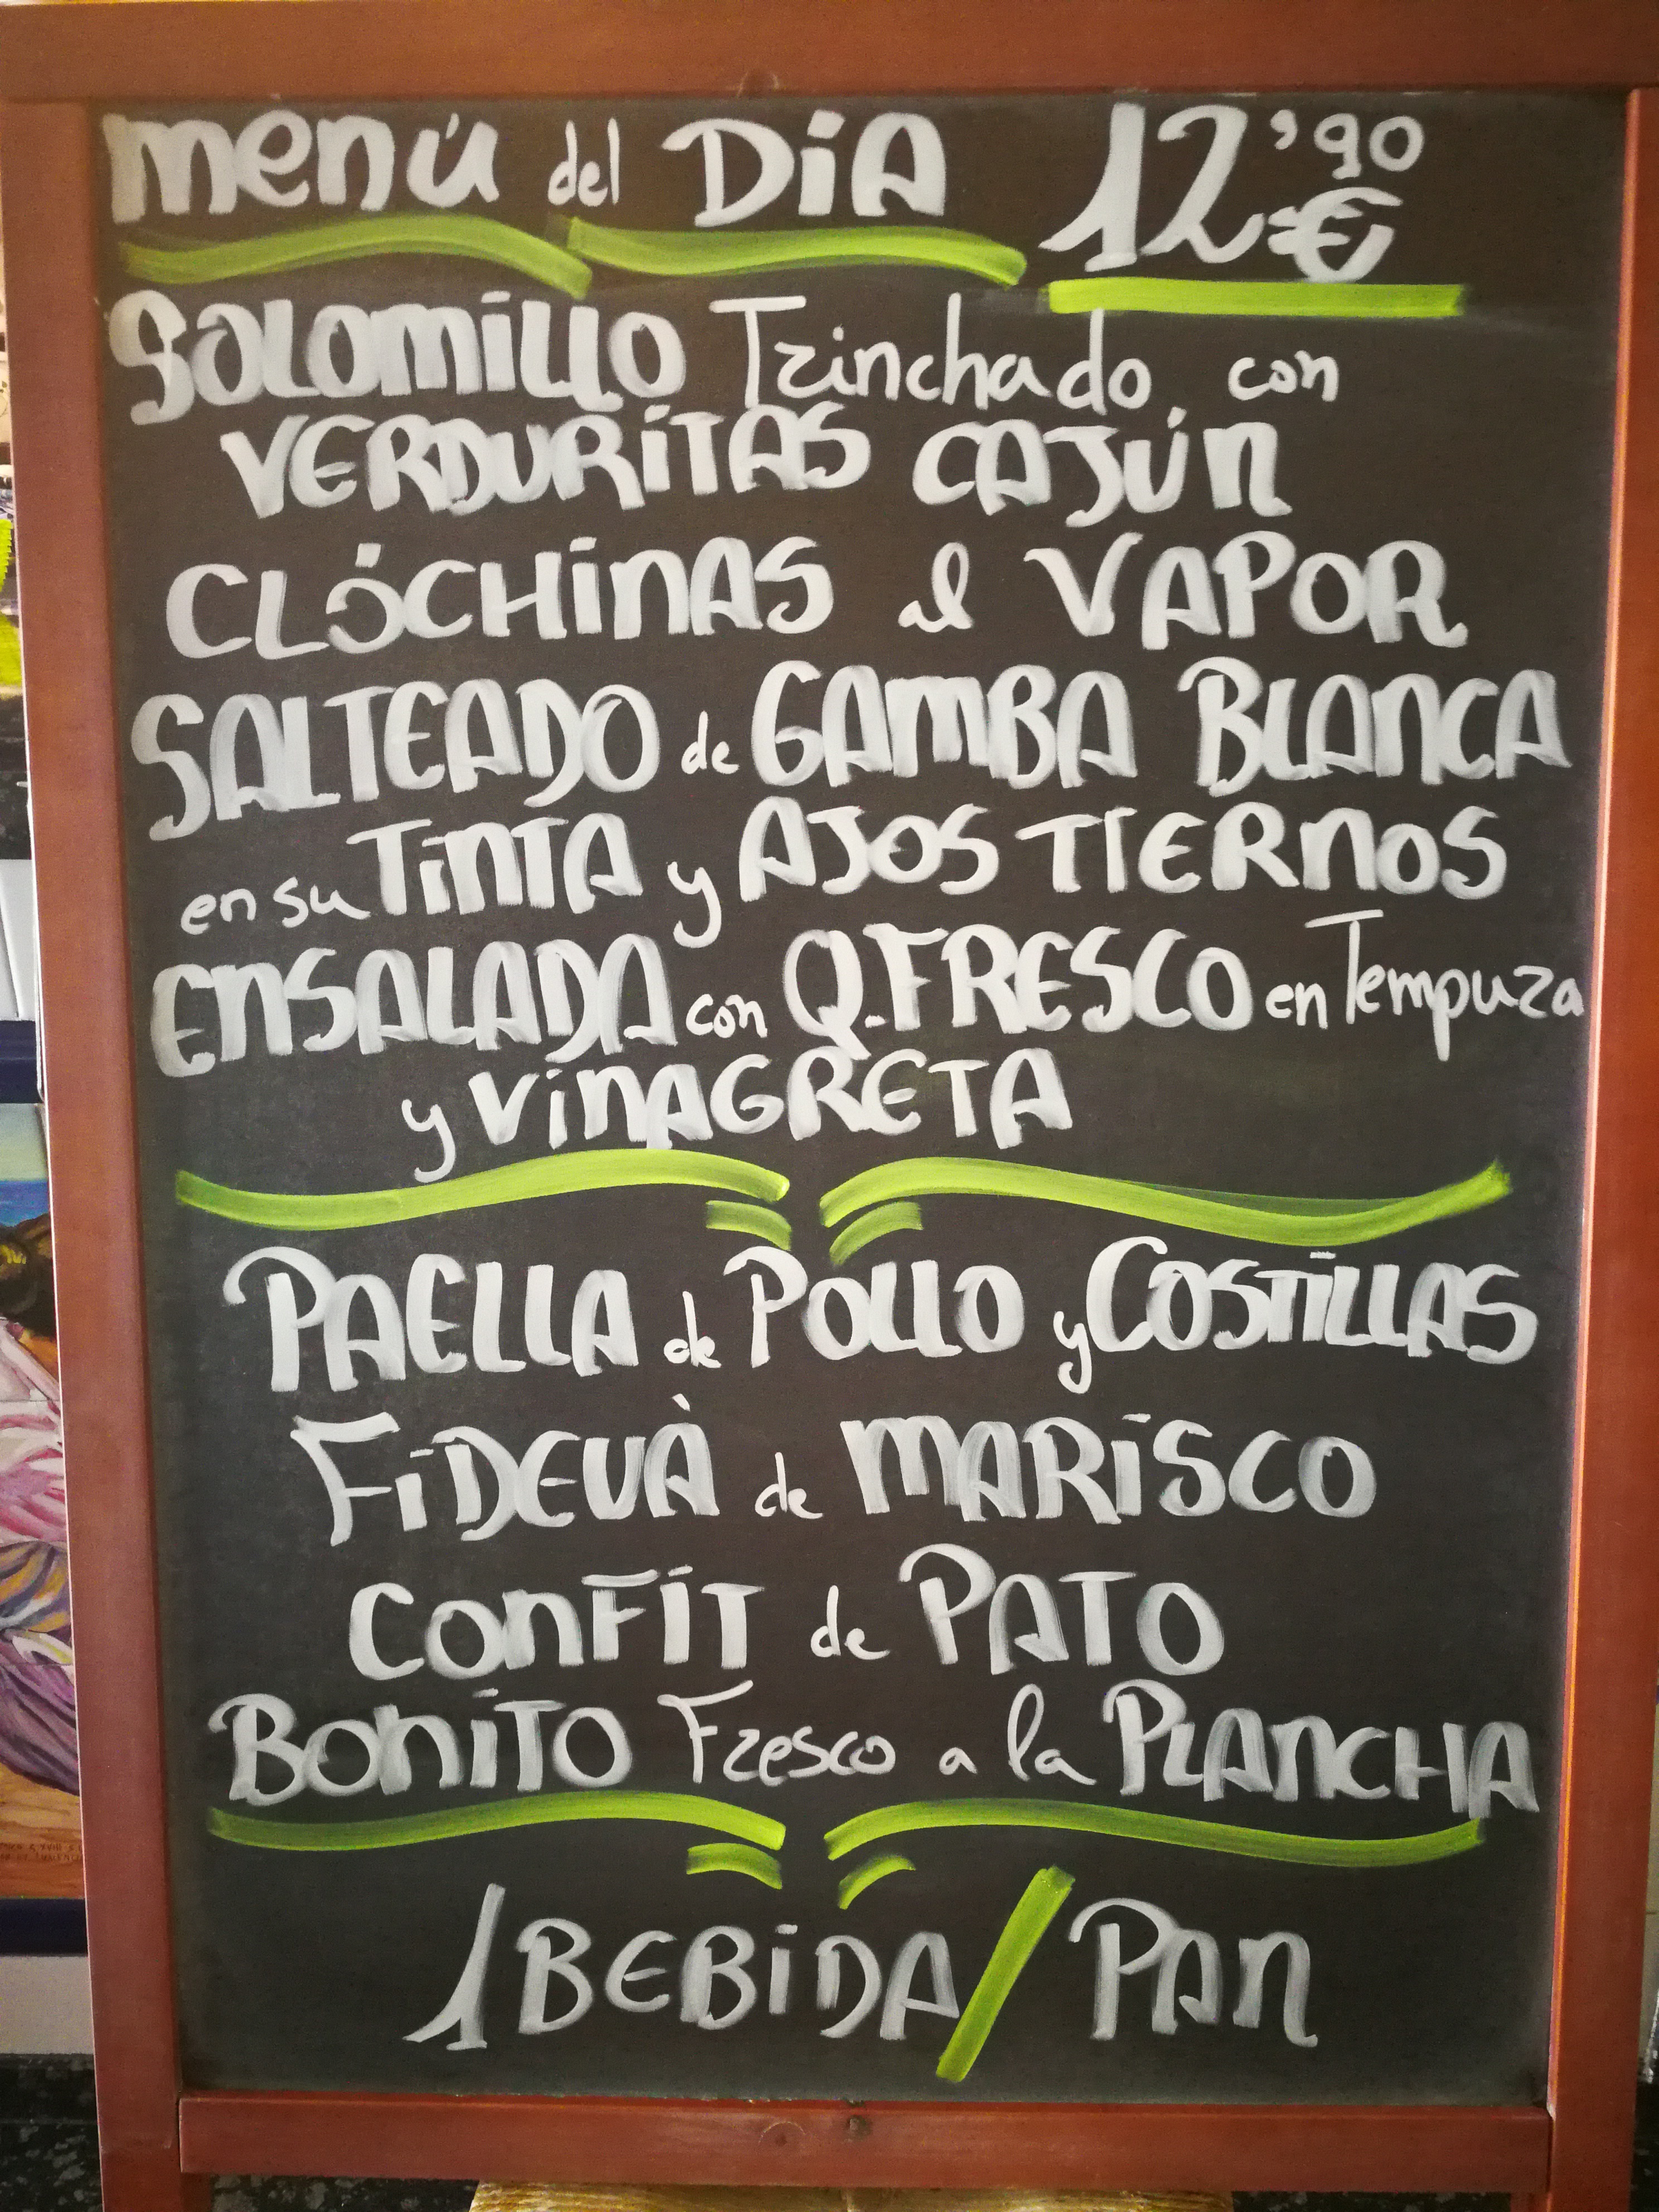 menú del DíA 12'90 €
SOLOMILLO Trinchado con
VERDURITAS CAJÚN
CLÓCHINAS al VAPOR
SALTEADO de GAMBA BLANCA
en su TINTA y AJOS TIERNOS
ENSALADA con Q.FRESCO en Tempura
y VINAGRETA
PAELLA de POLLO y COSTILLAS
FIDEUÀ de MARISCO
CONFIT de PATO
BONITO Fresco a la PLANCHA
1 BEBIDA / PAN